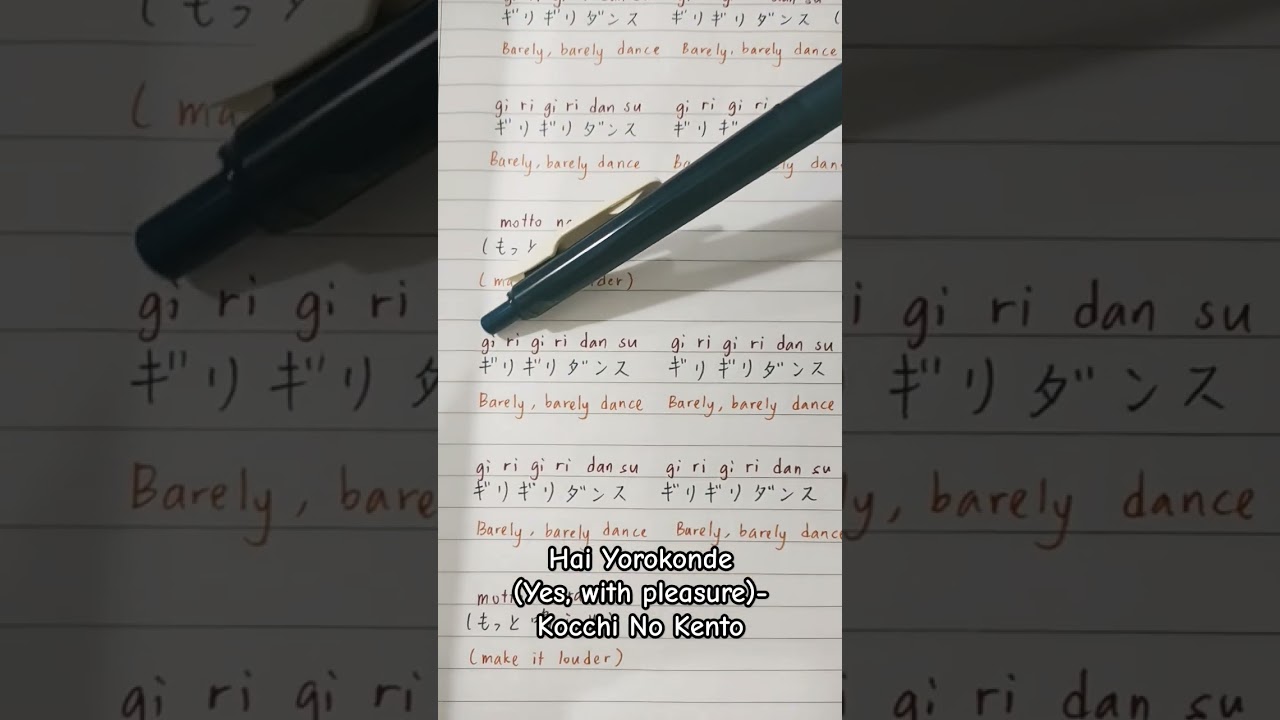 ギリギリダンス ギリギリダンス (
Barely, barely dance Barely, barely dance
gi ri gi ri dan su gi ri gi ri
ギリギリダンス ギリギ
Barely, barely dance dan
motto
(もっと
(ma louder)
gi ri gi ri dan su gi ri gi ri dan su
ギリギリダンス ギリギリダンス
Barely, barely dance Barely, barely dance
gi ri gi ri dan su gi ri gi ri dan su
ギリギリダンス ギリギリダンス
Barely, barely dance Barely, barely dance
Hai Yorokonde
(Yes, with pleasure)-
(もっと
Kocchi No Kento
(make it louder)